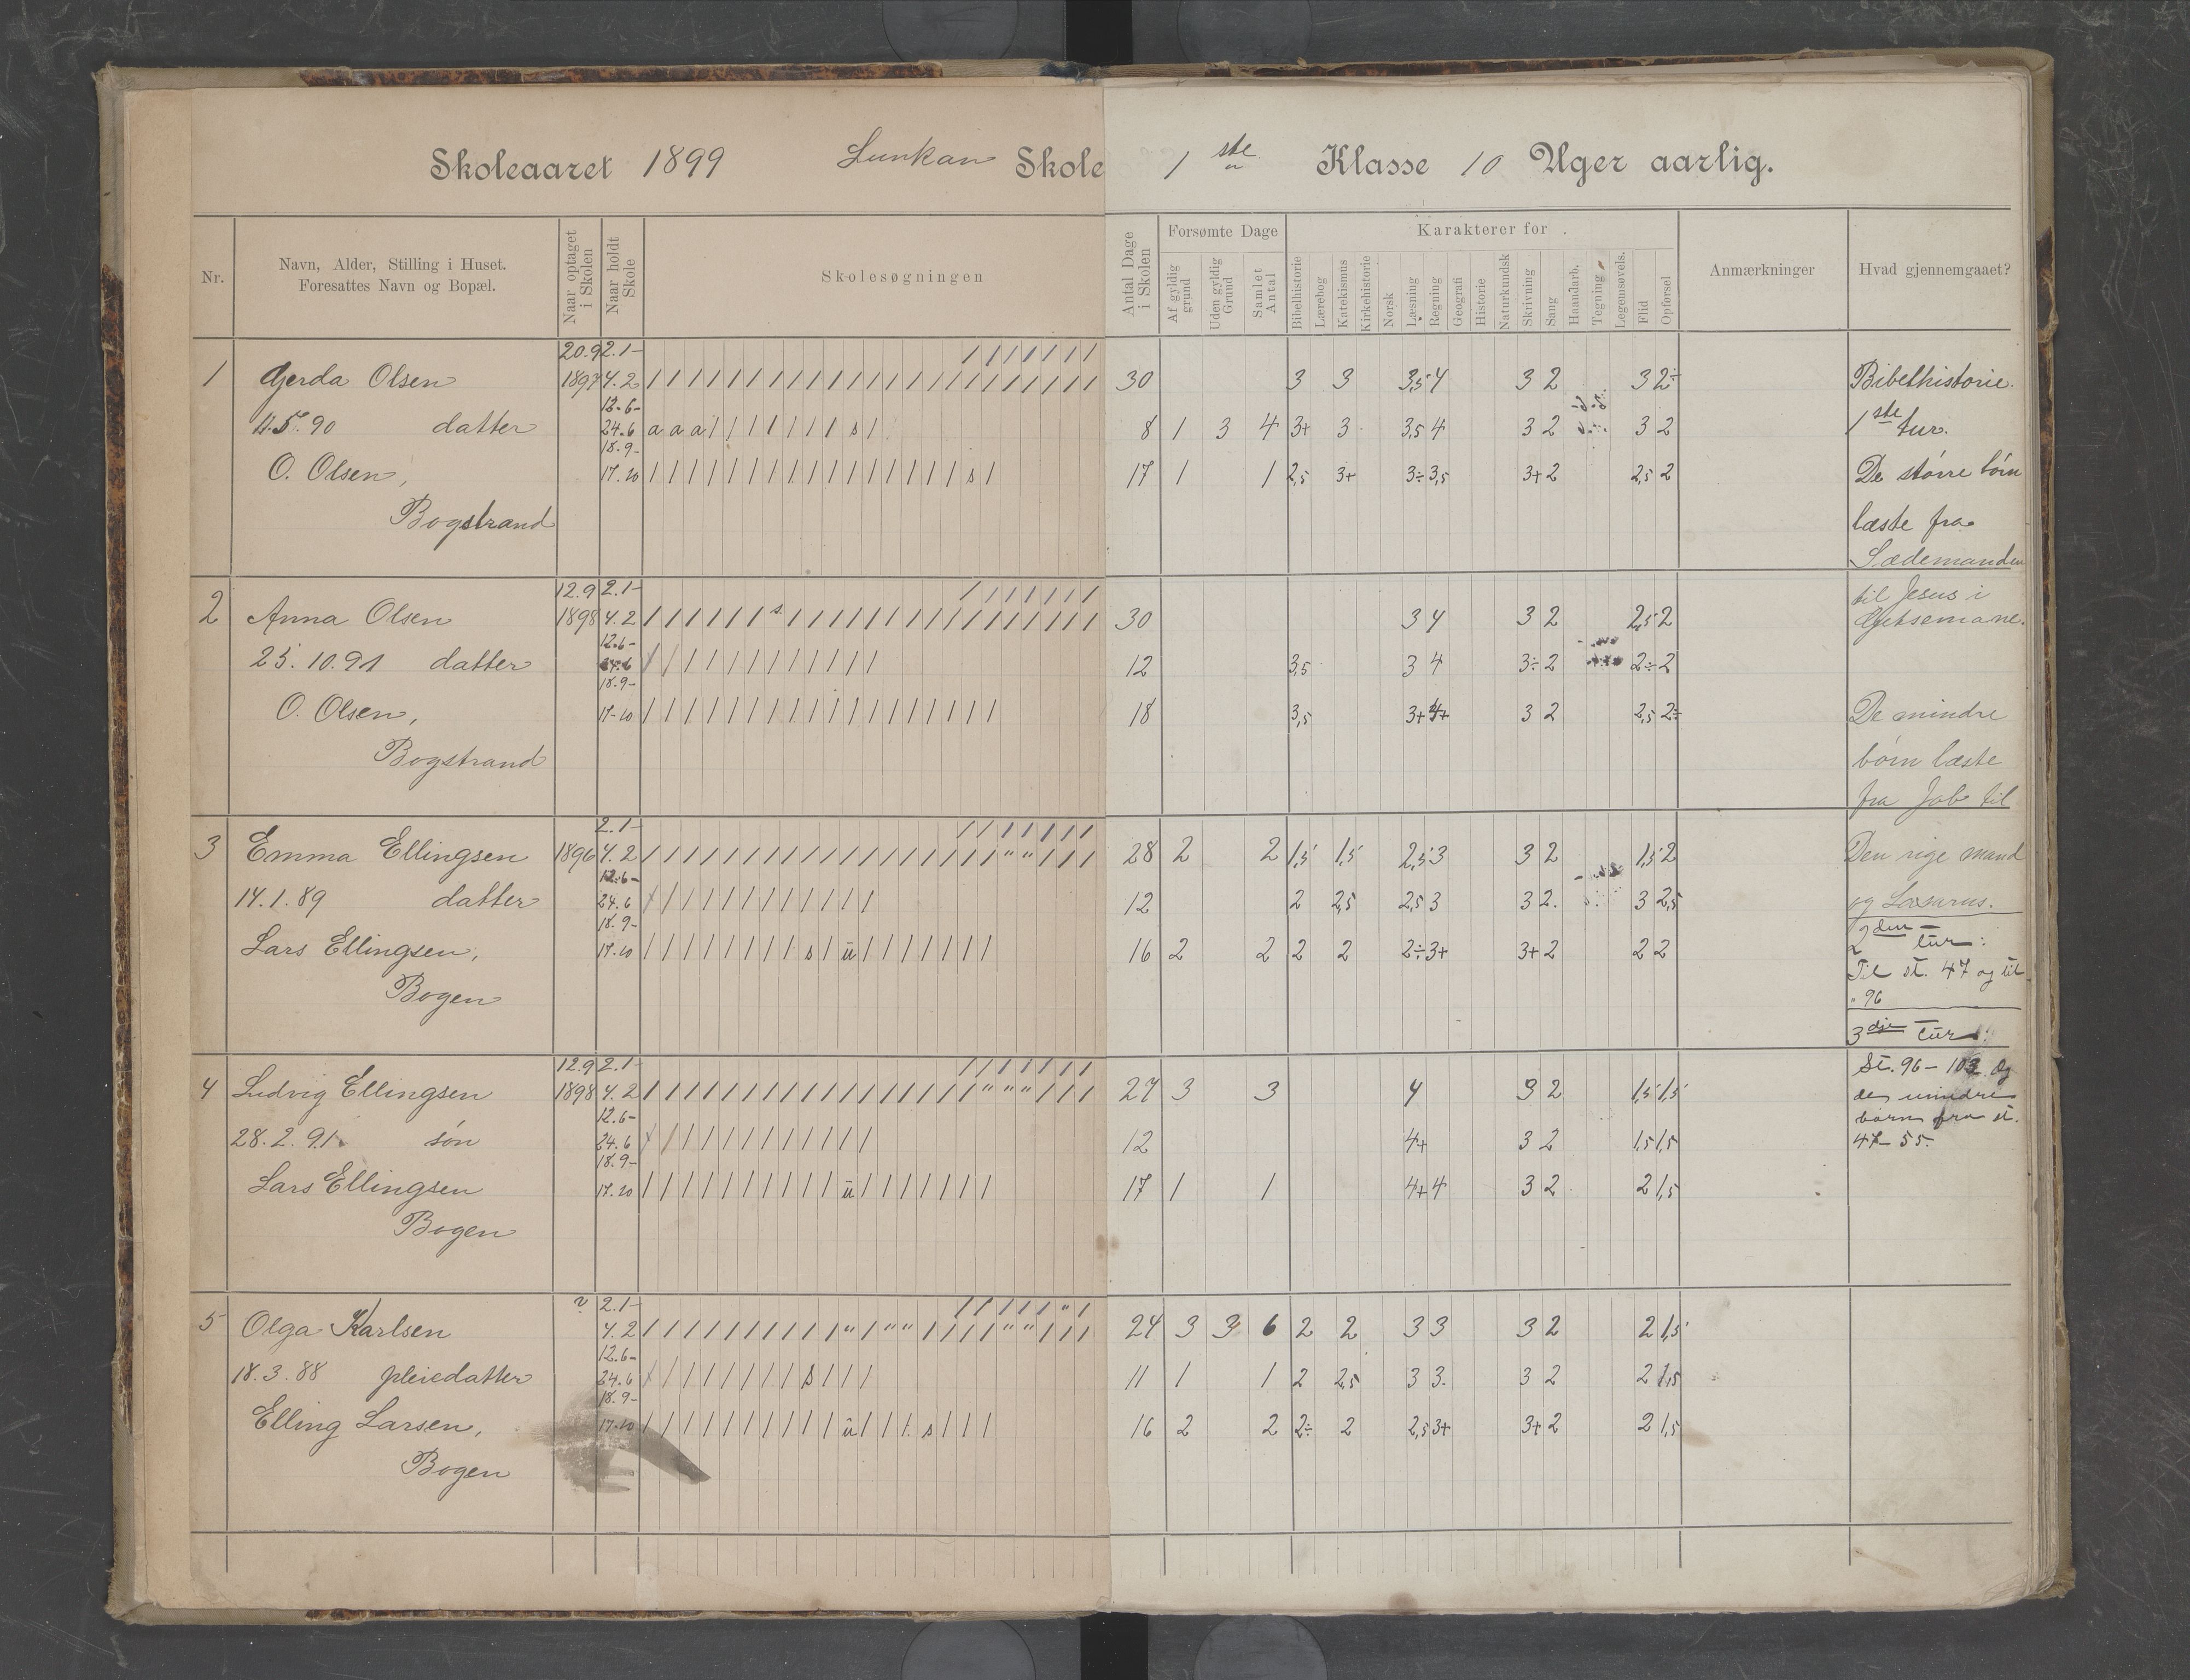 Skoleaaret 1899 Lunkan Skole 1 ste Klasse 10 Uger aarlig.
Nr. Navn, Alder, Stilling i Huset. Foresattes Navn og Bopæl. Naar optaget i Skolen Naar holdt Skole Skolesøgningen Antal Dage i Skolen Forsømte Dage Af gyldig grund Uden gyldig Grund Samlet Antal Karakterer for Bibelhistorie Lærebog Katekismus Kirkehistorie Norsk Læsning Regning Geografi Historie Naturkundsk Skrivning Sang Haandarb. Tegning Legemsøvels. Flid Opførsel Anmærkninger Hvad gjennemgaaet?
20.9 2.1- / / / / / / /
1 Gerda Olsen 1897 4.2 / / / / / / / / / / / / / / / / / / / / / / / 30 3 3 3,5 4 3 2 3 2÷ Bibelhistorie.
12.6-
11.5.90 datter 24.6 a a a / / / / / / / s / 8 1 3 4 3+ 3 3,5 4 3 2 3 2 1ste tur.
18.9-
O. Olsen, 17.10 / / / / / / / / / / / / / / / / s / 17 1 1 2,5 3+ 3÷ 3,5 3+ 2 2,5 2 De större börn
Bogstrand læste fra
Sædemanden
12.9 2.1- / / / / / / / til Jesus i
2 Anna Olsen 1898 4.2 / / / / / / s / / / / / / / / / / / / / / / / 30 3 4 3 2 2,5 2 Getsemane.
12.6-
25.10.91 datter 24.6 / / / / / / / / / / / / 12 3,5 3 4 3÷ 2 2÷ 2
18.9-
O. Olsen, 17-10 / / / / / / / / / / / / / / / / / / 18 3,5 3+ 4+ 3 2 2,5 2÷ De mindre
Bogstrand börn læste
fra Job til
2.1- / / / / / / /
3 Emma Ellingsen 1896 4.2 / / / / / / / / / / / / / / / / / / " " / / / 28 2 2 1,5 1,5 2,5 3 3 2 1,5 2 Den rige mand
12.6-
14.1.89 datter 24.6 / / / / / / / / / / / / 12 2 2,5 2,5 3 3 2. 3 2,5 og Lazarus.
18.9- 2den tur:
Lars Ellingsen, 17.10 / / / / / / / / s / ū / / / / / / / 16 2 2 2 2 2÷ 3+ 3+ 2 2 2
Til st. 47 og til
Bogen " 96
3dje tur:
12.9 2.1- / / / / / / / St. 96 - 103. Og
4 Ludvig Ellingsen 1898 4.2 / / / / / / / / / / / / / / / / / " " " / / / 27 3 3 4 3 2 1,5 1,5 de mindre
12.6- börn fra st.
28.2.91 sön 24.6 / / / / / / / / / / / / 12 4+ 3 2 1,5 1,5 47-55.
18.9-
Lars Ellingsen 17.10 / / / / / / / / / / ū / / / / / / / 17 1 1 4+ 4 3 2 2 1,5
Bogen
? 2.1- / / / / / " /
5 Olga Karlsen 4.2 / / / / / / / / / / " / " " / / / / " " / / / 24 3 3 6 2 2 3 3 3 2 2 1,5
12.6-
18.3.88 pleiedatter 24.6 / / / / / / / / s / / / 11 1 1 2 2,5 3 3. 3 2 2 1,5
18.9-
Elling Larsen, 17.10 / / / / / / / / / / ū / / / s / / / 16 2 2 2÷ 2 2,5 3+ 3+ 2 2 1,5
Bogen